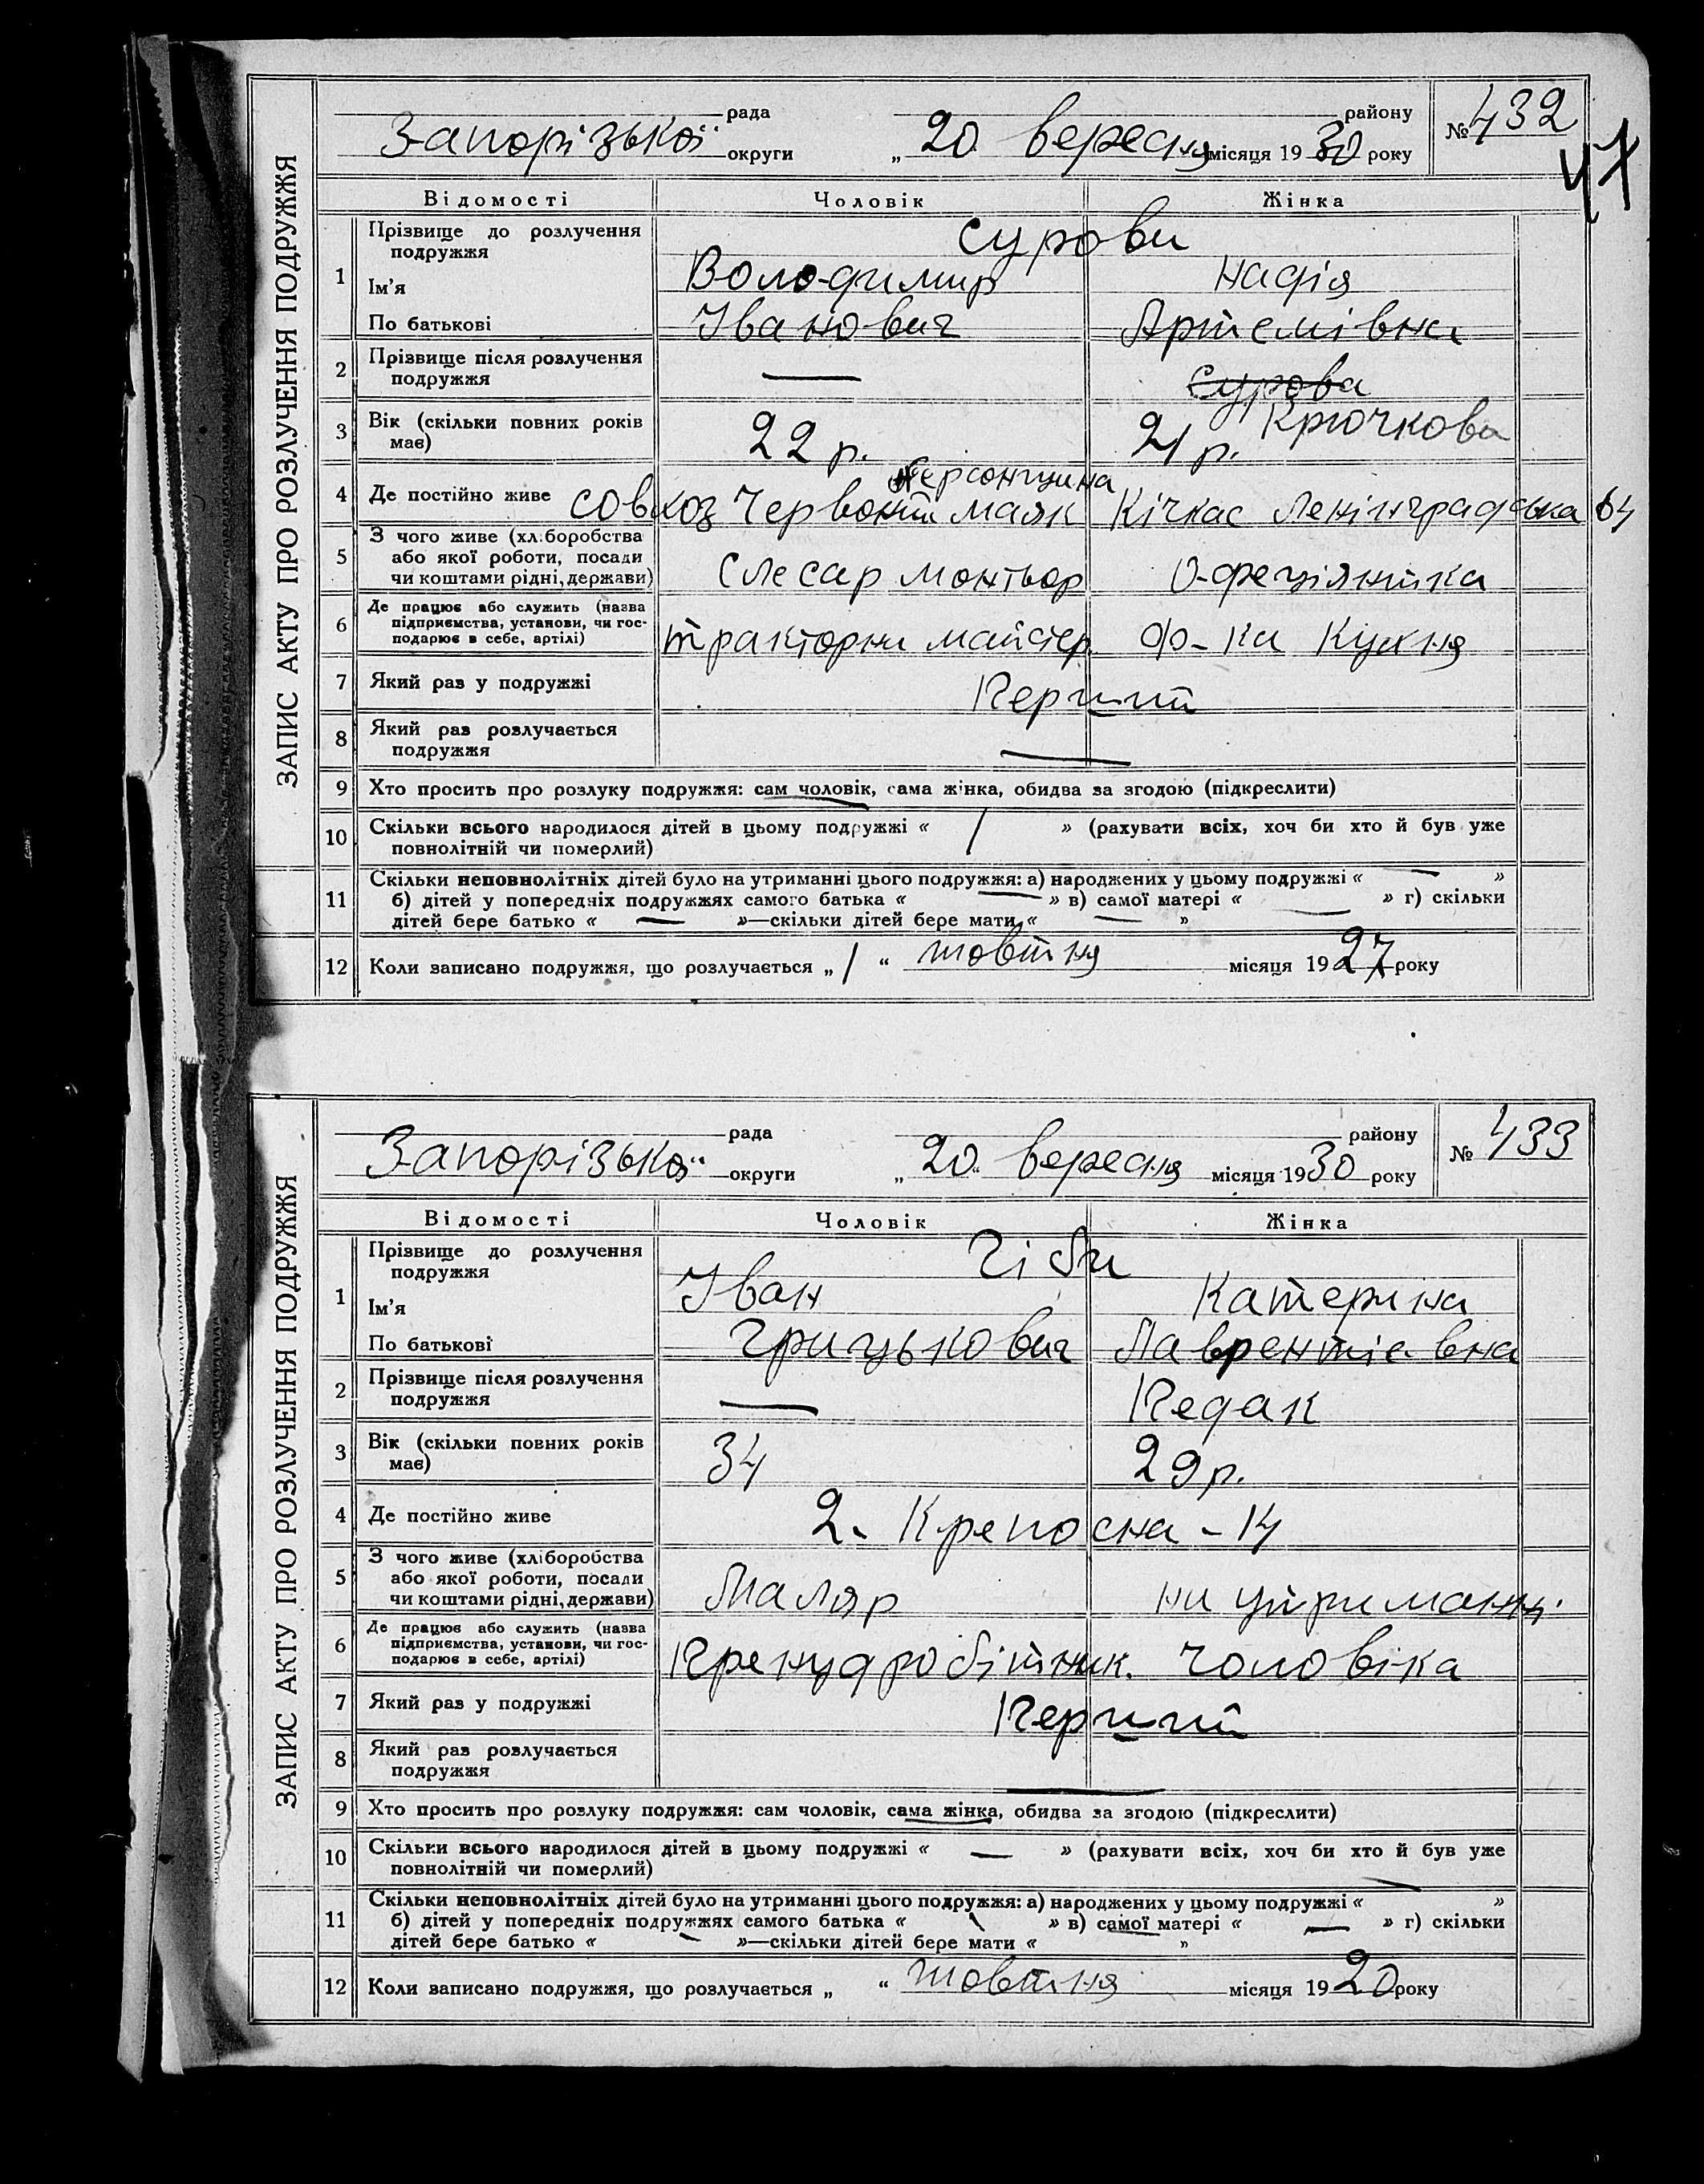 ЗАПИС АКТУ ПРО РОЗЛУЧЕННЯ ПОДРУЖЖЯ
рада району № 432
Запорізької округи „ 20 вересня місяця 19 30 року
47
Відомості Чоловік Жінка
1 Прізвище до розлучення подружжя Сурови
Ім'я Володимир Надія
По батькові Іванович Артемівна
2 Прізвище після розлучення
подружжя — Сурова
Крючкова
3 Вік (скільки повних років
має) 22 р. 21 р.
Херсонщина
4 Де постійно живе совхоз Червоний маяк Кічкас Ленінградська 64
5 З чого живе (хліборобства
або якої роботи, посади
чи коштами рідні, держави) Слесар монтьор Офеціянтка
6 Де працює або служить (назва
підприємства, установи, чи гос-
подарює в себе, артілі) тракторни майстер. Ф-ка Кухня
7 Який раз у подружжі Перший
8 Який раз розлучається
подружжя —
9 Хто просить про розлуку подружжя: сам чоловік, сама жінка, обидва за згодою (підкреслити)
10 Скільки всього народилося дітей в цьому подружжі « / » (рахувати всіх, хоч би хто й був уже
повнолітній чи померлий)
11 Скільки неповнолітніх дітей було на утриманні цього подружжя: а) народжених у цьому подружжі « — »
б) дітей у попередніх подружжях самого батька « — » в) самої матері « — » г) скільки
дітей бере батько « — »—скільки дітей бере мати « — »
12 Коли записано подружжя, що розлучається „ 1 “ жовтня місяця 19 27 року
ЗАПИС АКТУ ПРО РОЗЛУЧЕННЯ ПОДРУЖЖЯ
рада району № 433
Запорізької округи „ 20 “ вересня місяця 19 30 року
Відомості Чоловік Жінка
1 Прізвище до розлучення
подружжя Гіби
Ім'я Іван Катерина
По батькові Грицькович Лаврентієвна
2 Прізвище після розлучення
подружжя — Педак
3 Вік (скільки повних років
має) 34 29 р.
4 Де постійно живе 2. Крепосна - 14
5 З чого живе (хліборобства
або якої роботи, посади
чи коштами рідні, держави) Маляр на утриманні
6 Де працює або служить (назва
підприємства, установи, чи гос-
подарює в себе, артілі) чоловіка
7 Який раз у подружжі Перший
8 Який раз розлучається
подружжя —
9 Хто просить про розлуку подружжя: сам чоловік, сама жінка, обидва за згодою (підкреслити)
10 Скільки всього народилося дітей в цьому подружжі « — » (рахувати всіх, хоч би хто й був уже
повнолітній чи померлий)
11 Скільки неповнолітніх дітей було на утриманні цього подружжя: а) народжених у цьому подружжі « — »
б) дітей у попередніх подружжях самого батька « — » в) самої матері « — » г) скільки
дітей бере батько « — »—скільки дітей бере мати « »
12 Коли записано подружжя, що розлучається „ “ жовтня місяця 19 20 року